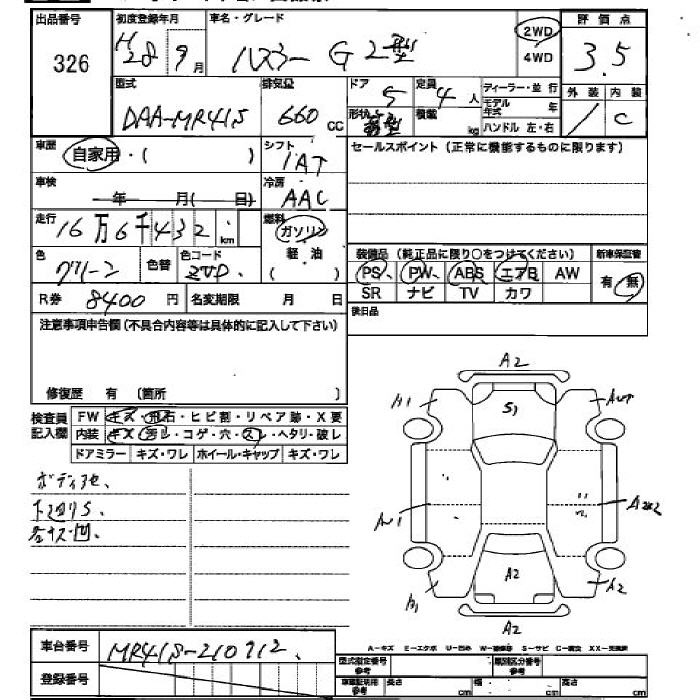 出品番号 初度登録年月 車名・グレード 2WD 4WD 評価点
326 H28 9月 ハスラー G 2型 3.5
型式 排気量 ドア 定員 ディーラー・並行 外装 内装
DAA-MR41S 660 cc 5 4人 モデル年式 年 / C
形状 積載 kg ハンドル 左・右
車歴 自家用・( ) シフト IAT セールスポイント(正常に機能するものに限ります)
車検 年 月( 日) 冷房 AAC
走行 16万6千432 km 燃料 ガソリン 軽油 ( )
色 グリーン 色替 色コード ZVD 装備品(純正品に限り○をつけてください) 新車保証書
PS PW ABS エアB AW 有・無
R券 8400円 名変期限 月 日 SR ナビ TV カワ
注意事項申告欄(不具合内容等は具体的に記入して下さい) 後日品
修復歴 有 〔箇所 〕
検査員記入欄 FW キズ・飛石・ヒビ割・リペア跡・X要
内装 キズ・汚レ・コゲ・穴・スレ・ヘタリ・破レ
ドアミラー キズ・ワレ ホイール・キャップ キズ・ワレ
下廻りS、
A2
A1 S1
A2
A1 A2
車台番号 MR41S-210712
登録番号
A-キズ E-エクボ U-凹み W-補修跡 S-サビ C-腐食 XX-交換済
型式指定番号 参考 類別区分番号 参考
車庫証明用 参考 長さ cm 幅 cm 高さ cm